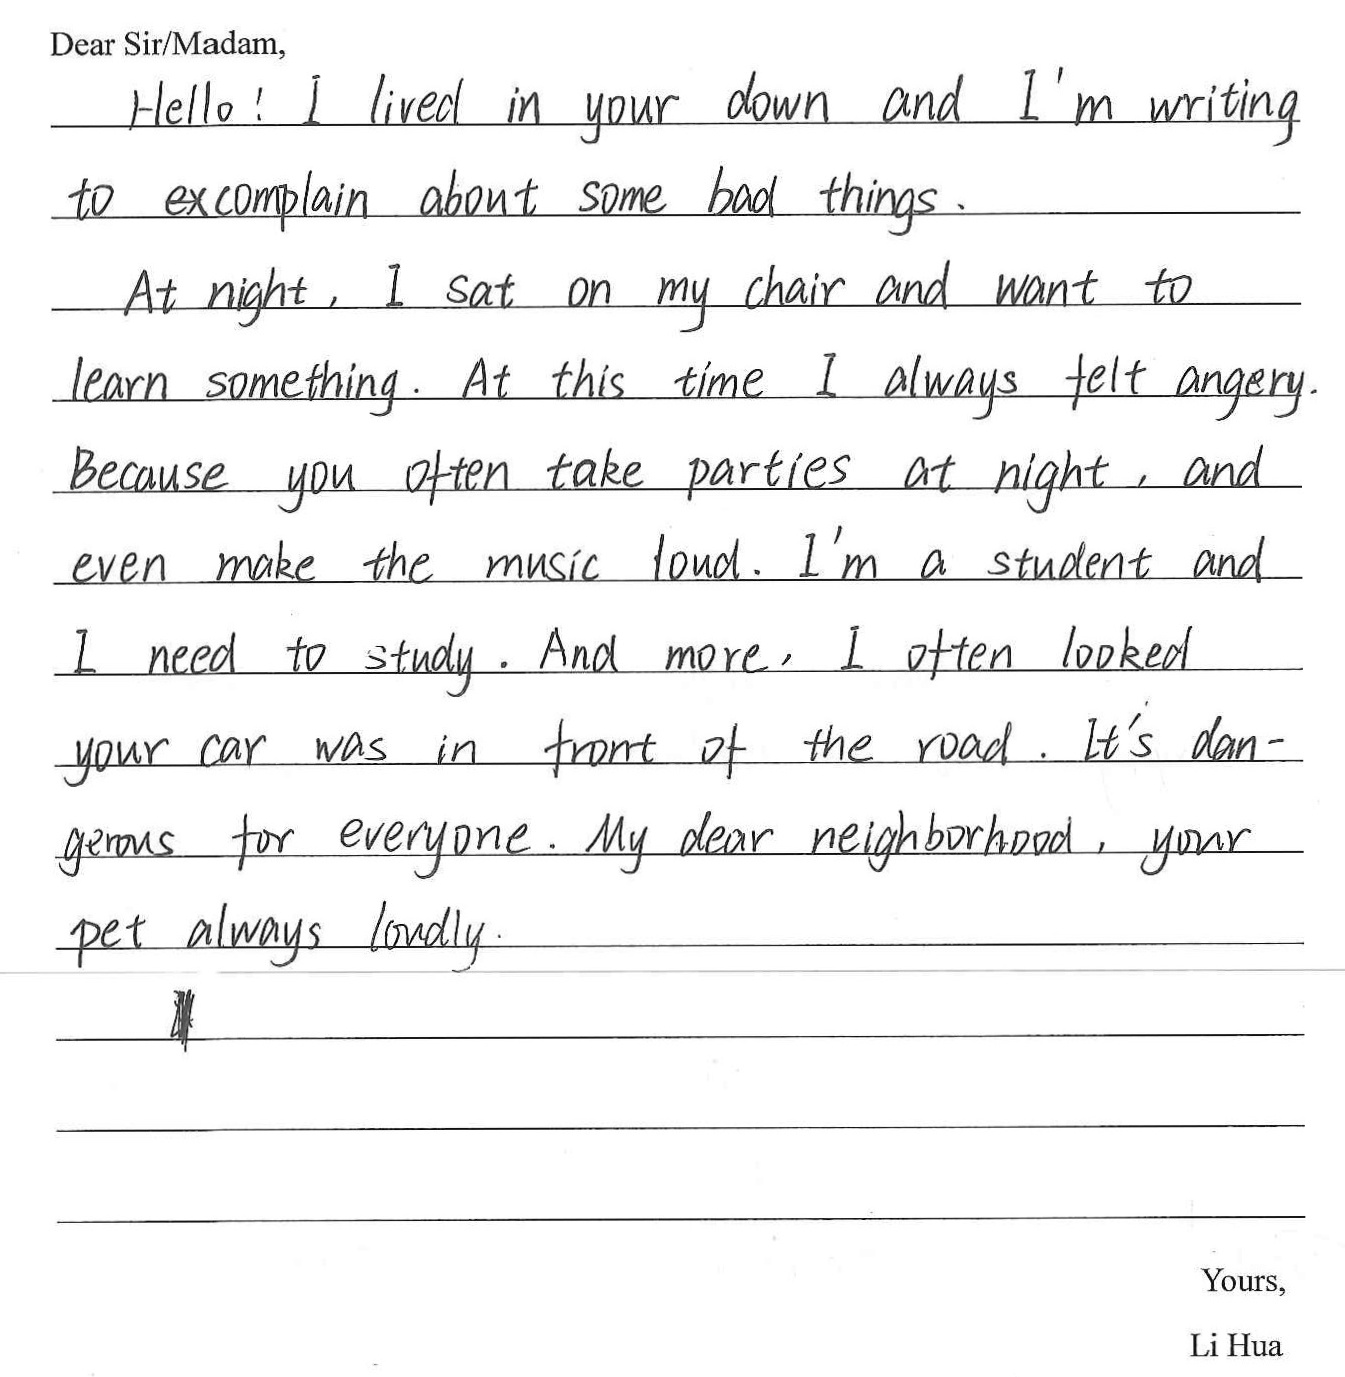 Dear Sir/Madam,
Hello! I lived in your down and I'm writing
to excomplain about some bad things.
At night, I sat on my chair and want to
learn something. At this time I always felt angery.
Because you often take parties at night, and
even make the music loud. I'm a student and
I need to study. And more, I often looked
your car was in front of the road. It's dan-
gerous for everyone. My dear neighborhood, your
pet always loudly.
Yours,
Li Hua